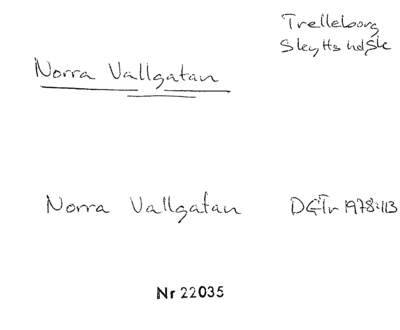 Trelleborg
Skytts hd Sk
Norra Vallgatan
Norra Vallgatan DGTr 1978:113
Nr 22035